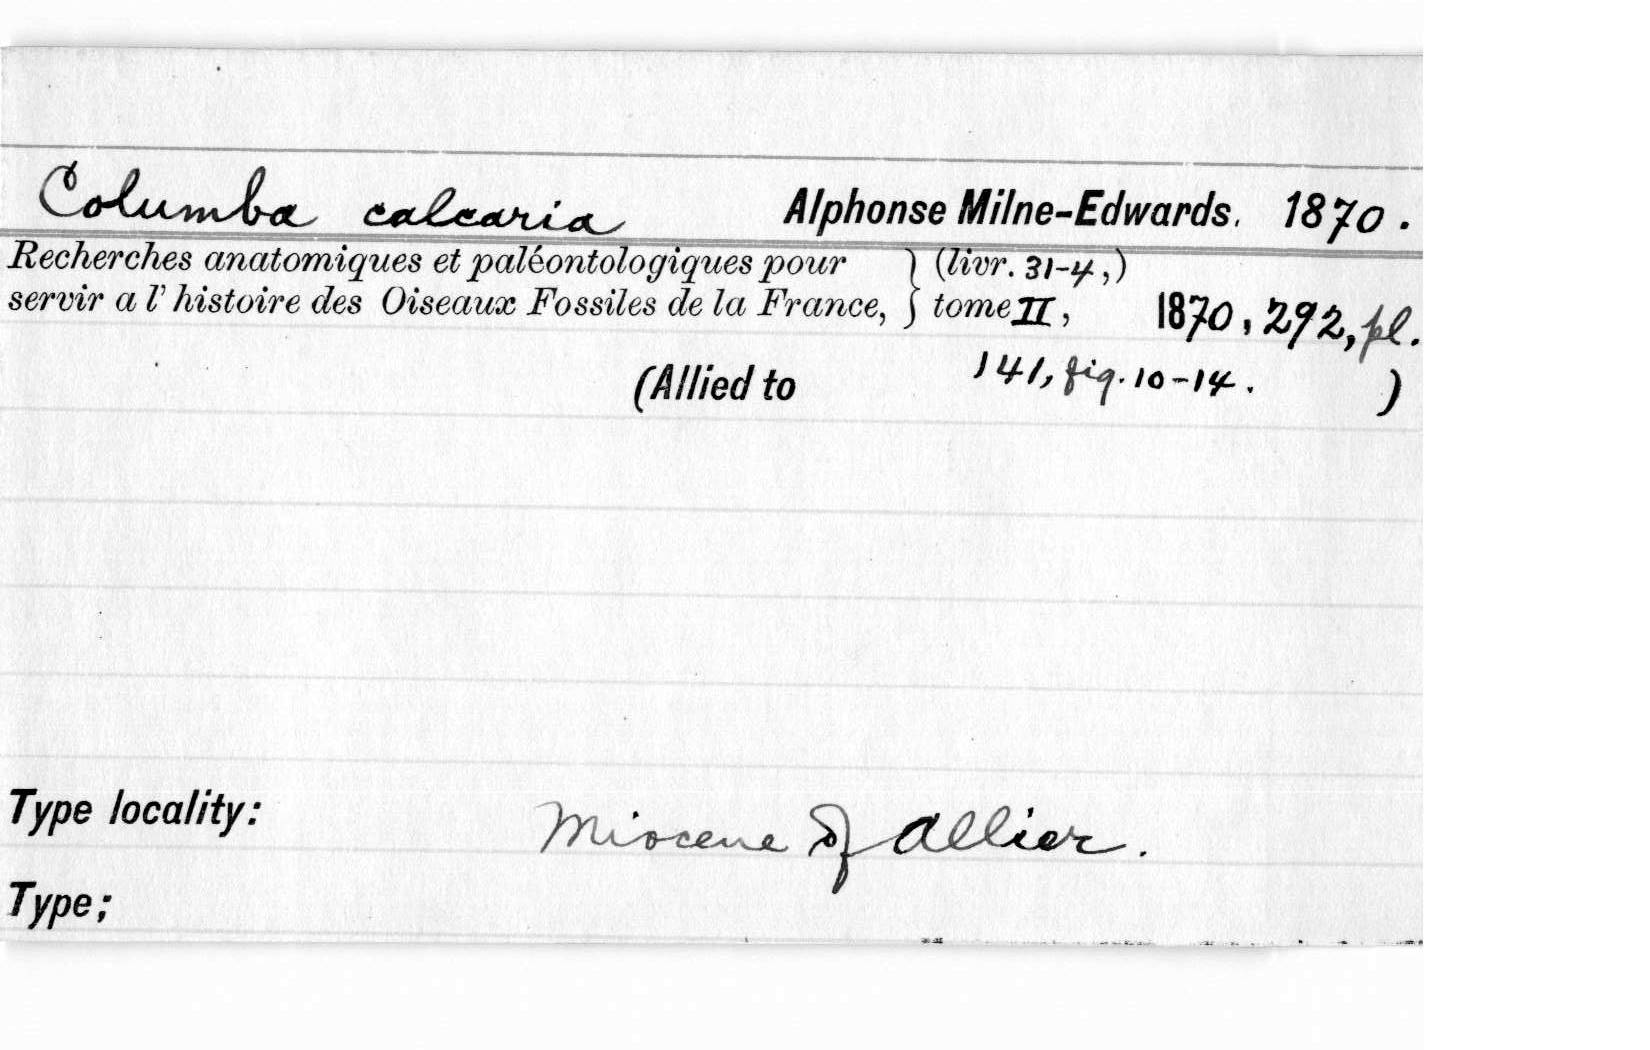 Columba calcaria Alphonse Milne-Edwards. 1870.
Recherches anatomiques et paléontologiques pour } (livr. 31-4,)
servir a l' histoire des Oiseaux Fossiles de la France, } tome II, 1870, 292, pl.
(Allied to 141, fig. 10-14. )
Type locality: Miocene of Allier.
Type;